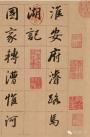 淮安府濬路馬
湖記
國家轉漕惟河